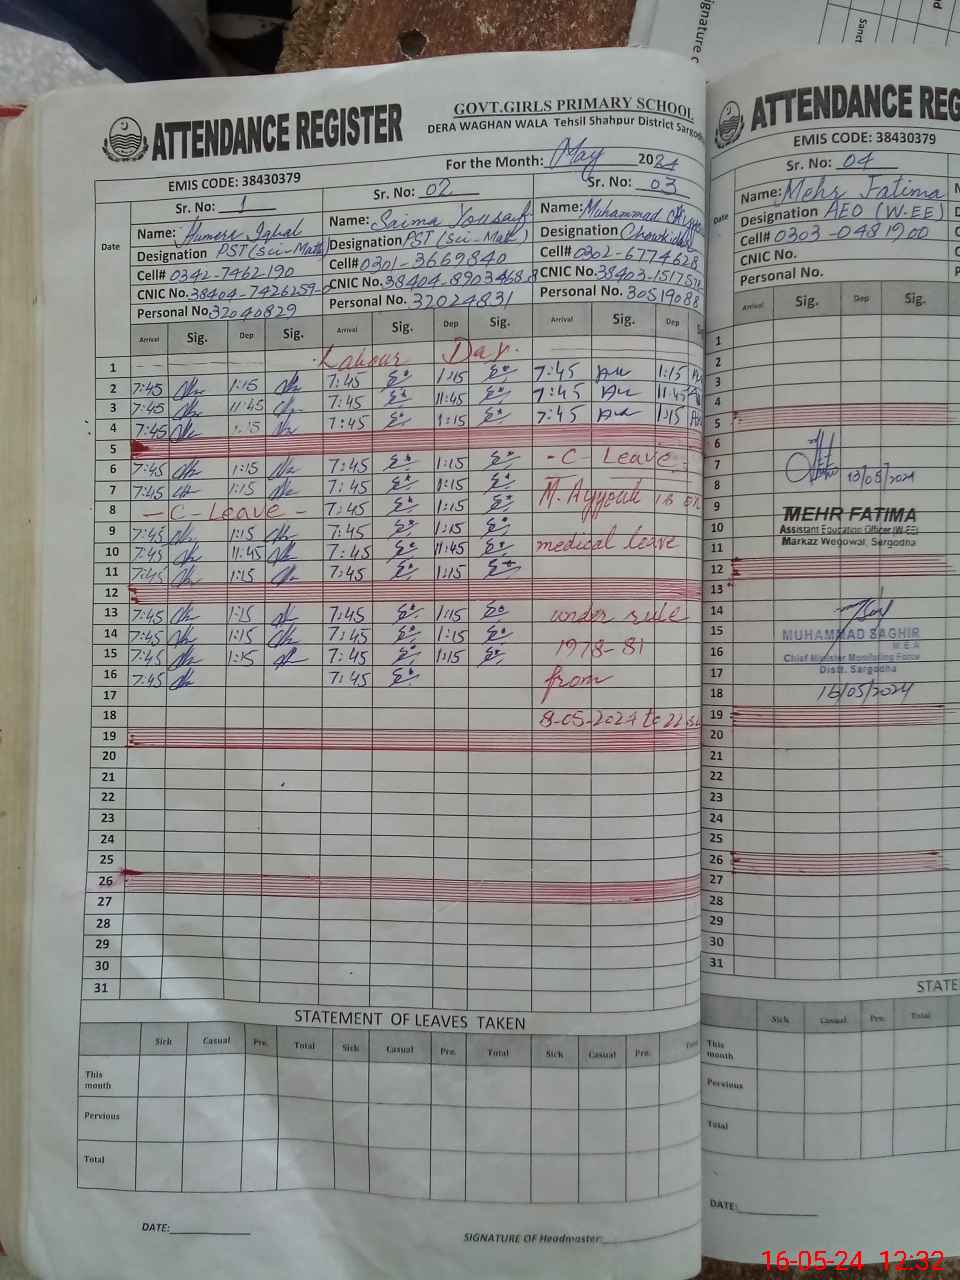 ATTENDANCE REGISTER
GOVT.GIRLS PRIMARY SCHOOL
DERA WAGHAN WALA Tehsil Shahpur District Sargo
For the Month: May 2024
EMIS CODE: 38430379
Sr. No: 1
Sr. No: 02
Sr. No: 03
Date
Name: Humera Iqbal
Name: Saima Yousaf
Name: Muhammad
Designation PST (Sci-Math)
Designation PST (Sci-Mat
Designation Chowkidar
Cell# 0342-7462190
Cell# 0301-3669840
Cell# 0302-6774628
CNIC No. 38404-7426259-
CNIC No. 38404-8903468-8
CNIC No. 38403-15175
Personal No. 32040829
Personal No. 32024831
Personal No. 30519088
Arrival Sig. Dep Sig. Arrival Sig. Dep Sig. Arrival Sig. Dep
1 Labour Day.
2 7:45 1:15 7:45 1:15 7:45 1:15
3 7:45 11:45 7:45 11:45 7:45 11:45
4 7:45 1:15 7:45 1:15 7:45 1:15
5
6 7:45 1:15 7:45 1:15 -C- Leave
7 7:45 1:15 7:45 1:15
8 -C-Leave- 7:45 1:15 M. Ayyoub is
9 7:45 1:15 7:45 1:15
10 7:45 11:45 7:45 11:45 medical leave
11 7:45 1:15 7:45 1:15
12
13 7:45 1:15 7:45 1:15 under rule
14 7:45 1:15 7:45 1:15
15 7:45 1:15 7:45 1:15 1978-81
16 7:45 7:45 from
17
18 8-05-2024 to 22
19
20
21
22
23
24
25
26
27
28
29
30
31
STATEMENT OF LEAVES TAKEN
Sick Casual Pre. Total Sick Casual Pre. Total Sick Casual Pre. Total
This month
Pervious
Total
DATE:
SIGNATURE OF Headmaster:
ATTENDANCE REG
EMIS CODE: 38430379
Sr. No: 04
Date
Name: Mehr Fatima
Designation AEO (W-EE)
Cell# 0303-0481900
CNIC No.
Personal No.
Arrival Sig. Dep Sig.
1
2
3
4
5
6
7
13/05/2024
8
9
MEHR FATIMA
10
Assistant Education Officer (W-EE)
11
Markaz Wegowal, Sargodha
12
13
14
15
MUHAMMAD SAGHIR
M E A
16
Chief Minister Monitoring Force
17
Distt. Sargodha
18
16/05/2024
19
20
21
22
23
24
25
26
27
28
29
30
31
STATE
Sick Casual Pre. Total
This month
Pervious
Total
DATE:
ignature
Sanct
16-05-24 12:32